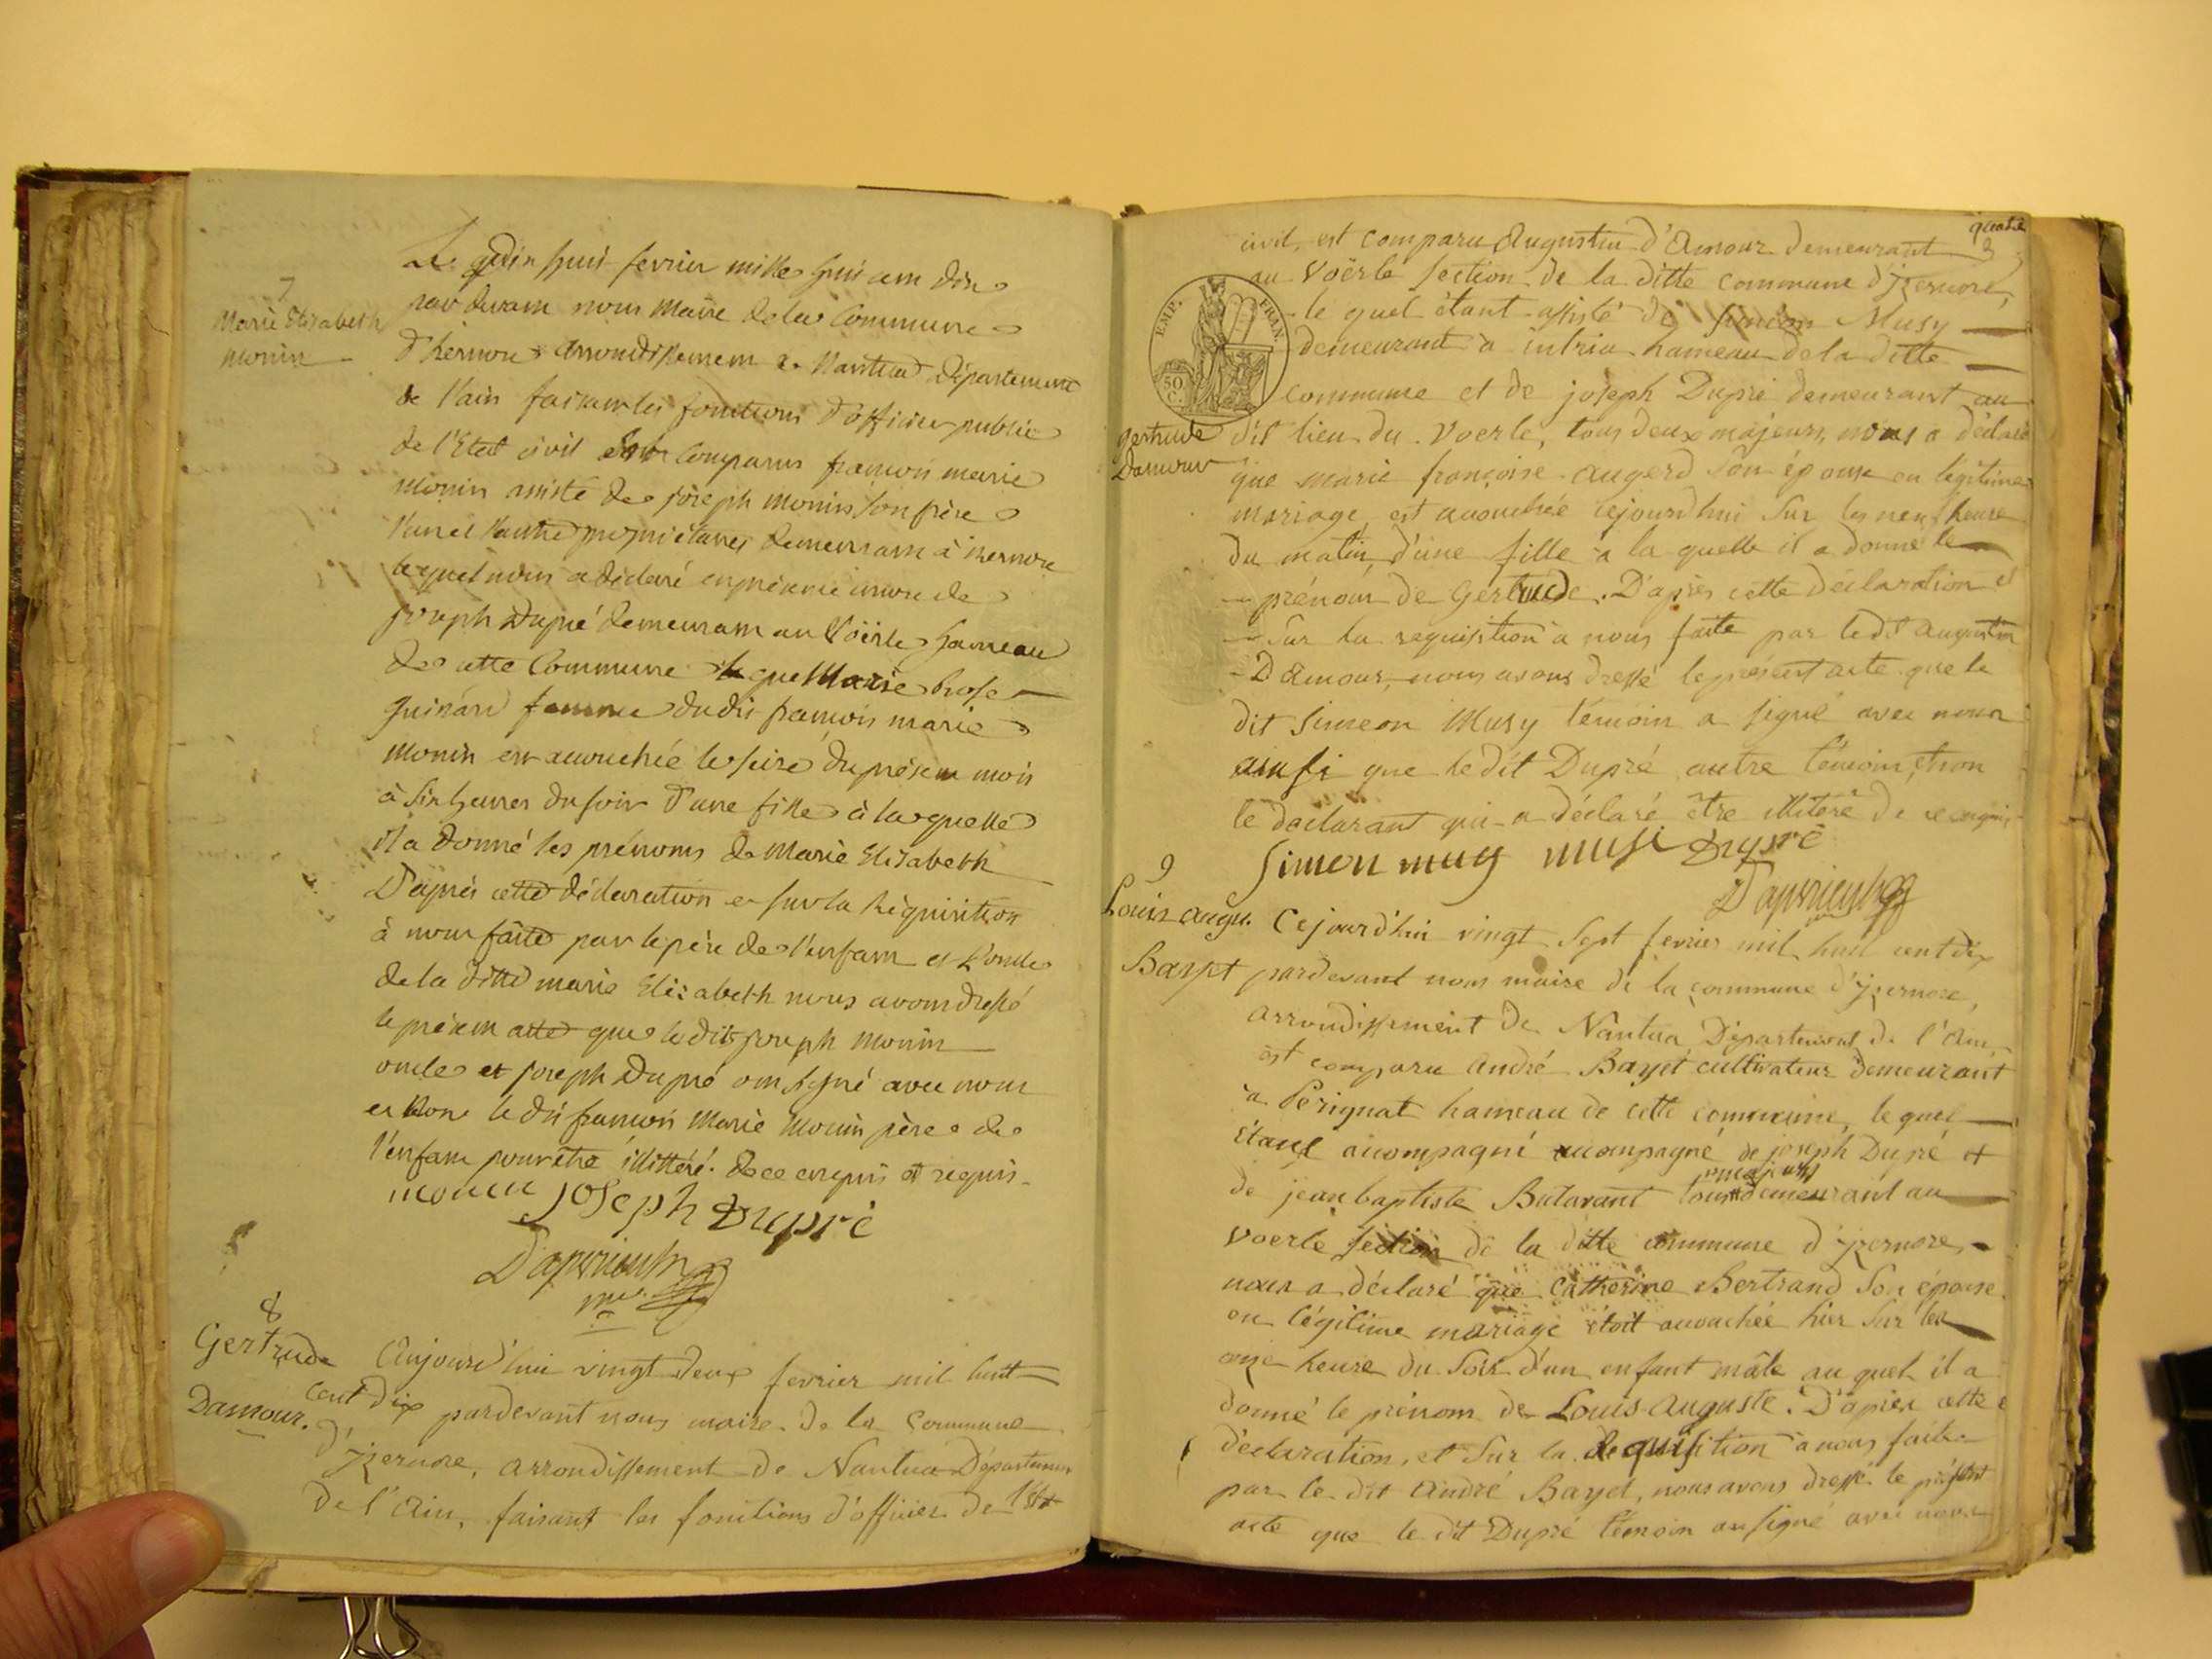 7
Marie Elisabeth
monin
Le dix huit fevrier mille huit cent dix
par devant nous Maire de la Commune
d'Izernore arrondissement de Nantua département
de l'ain faisant les fonctions d'officier public
de l'Etat civil Sont Comparus francois marie
monin assisté de joseph monin son frère
l'un et l'autre propriétaires demeurant à izernore
lequel nous a déclaré en présence encore de
joseph Dupré demeurant au Voërle hameau
de cette Commune que Marie
femme dudit francois marie
monin est accouchée le seize du présent mois
à six heures du soir d'une fille à laquelle
il a donné les prénoms de Marie Elisabeth
D'après cette déclaration et sur la Réquisition
à nous faite par le père de l'enfant et l'oncle
de la ditte marie Elizabeth nous avons dressé
le présent acte que le dit joseph monin
oncle et joseph Dupré ont signé avec nous
et Non le dit francois Marie Monin père de
l'enfant pour être illittéré. de ce enquis et requis.
monin joseph Dupré
8
Gertrude
Damour.
Aujourd'hui vingt deux fevrier mil huit
Cent dix pardevant nous maire de la Commune
d'jzernore, arrondissement de Nantua Département
de l'Ain, faisant les fonctions d'officier de l'état
quatre
civil, est comparu Augustin d'Amour demeurant
au Voërle section de la ditte commune d'jzernore,
le quel étant assisté de Simeon Musy
demeurant à intria hameau de la ditte
commune et de joseph Dupré demeurant au
EMP. FRAN.
50 C.
gertrude
Damour
dit lieu du Voerle, tous deux majeurs, nous a déclaré
que marie françoise augerd son épouse en légitime
mariage est accouchée cejourd'hui sur les neuf heures
du matin, d'une fille à la quelle il a donné le
prénom de Gertrude. D'après cette déclaration et
sur la requisition à nous faite par le dit augustin
D'Amour, nous avons dressé le présent acte que le
dit Simeon Musy témoin a signé avec nous
ainsi que le dit Dupré autre témoin, & non
le déclarant qui a déclaré être illitéré de ce enquis
Simon muzy musi Dupré
9
Louis augu.
Bayet
Cejourd'hui vingt sept fevrier mil huit cent dix
pardevant nous maire de la commune d'jzernore,
arrondissement de Nantua, Département de l'Ain,
est comparu André Bayet cultivateur demeurant
à Pérignat hameau de cette commune, le quel
étant accompagné accompagné de joseph Dupré et
de jean baptiste Butavant tous majeurs demeurant au
voerle section de la ditte commune d'jzernore,
nous a déclaré que Catherine Bertrand son épouse
en légitime mariage étoit accouchée hier sur les
onze heure du soir d'un enfant mâle au quel il a
donné le prénom de Louis Auguste. D'après cette
déclaration, et sur la Requisition à nous faite
par le dit André Bayet, nous avons dressé le présent
acte que le dit Dupré témoin a signé avec nous